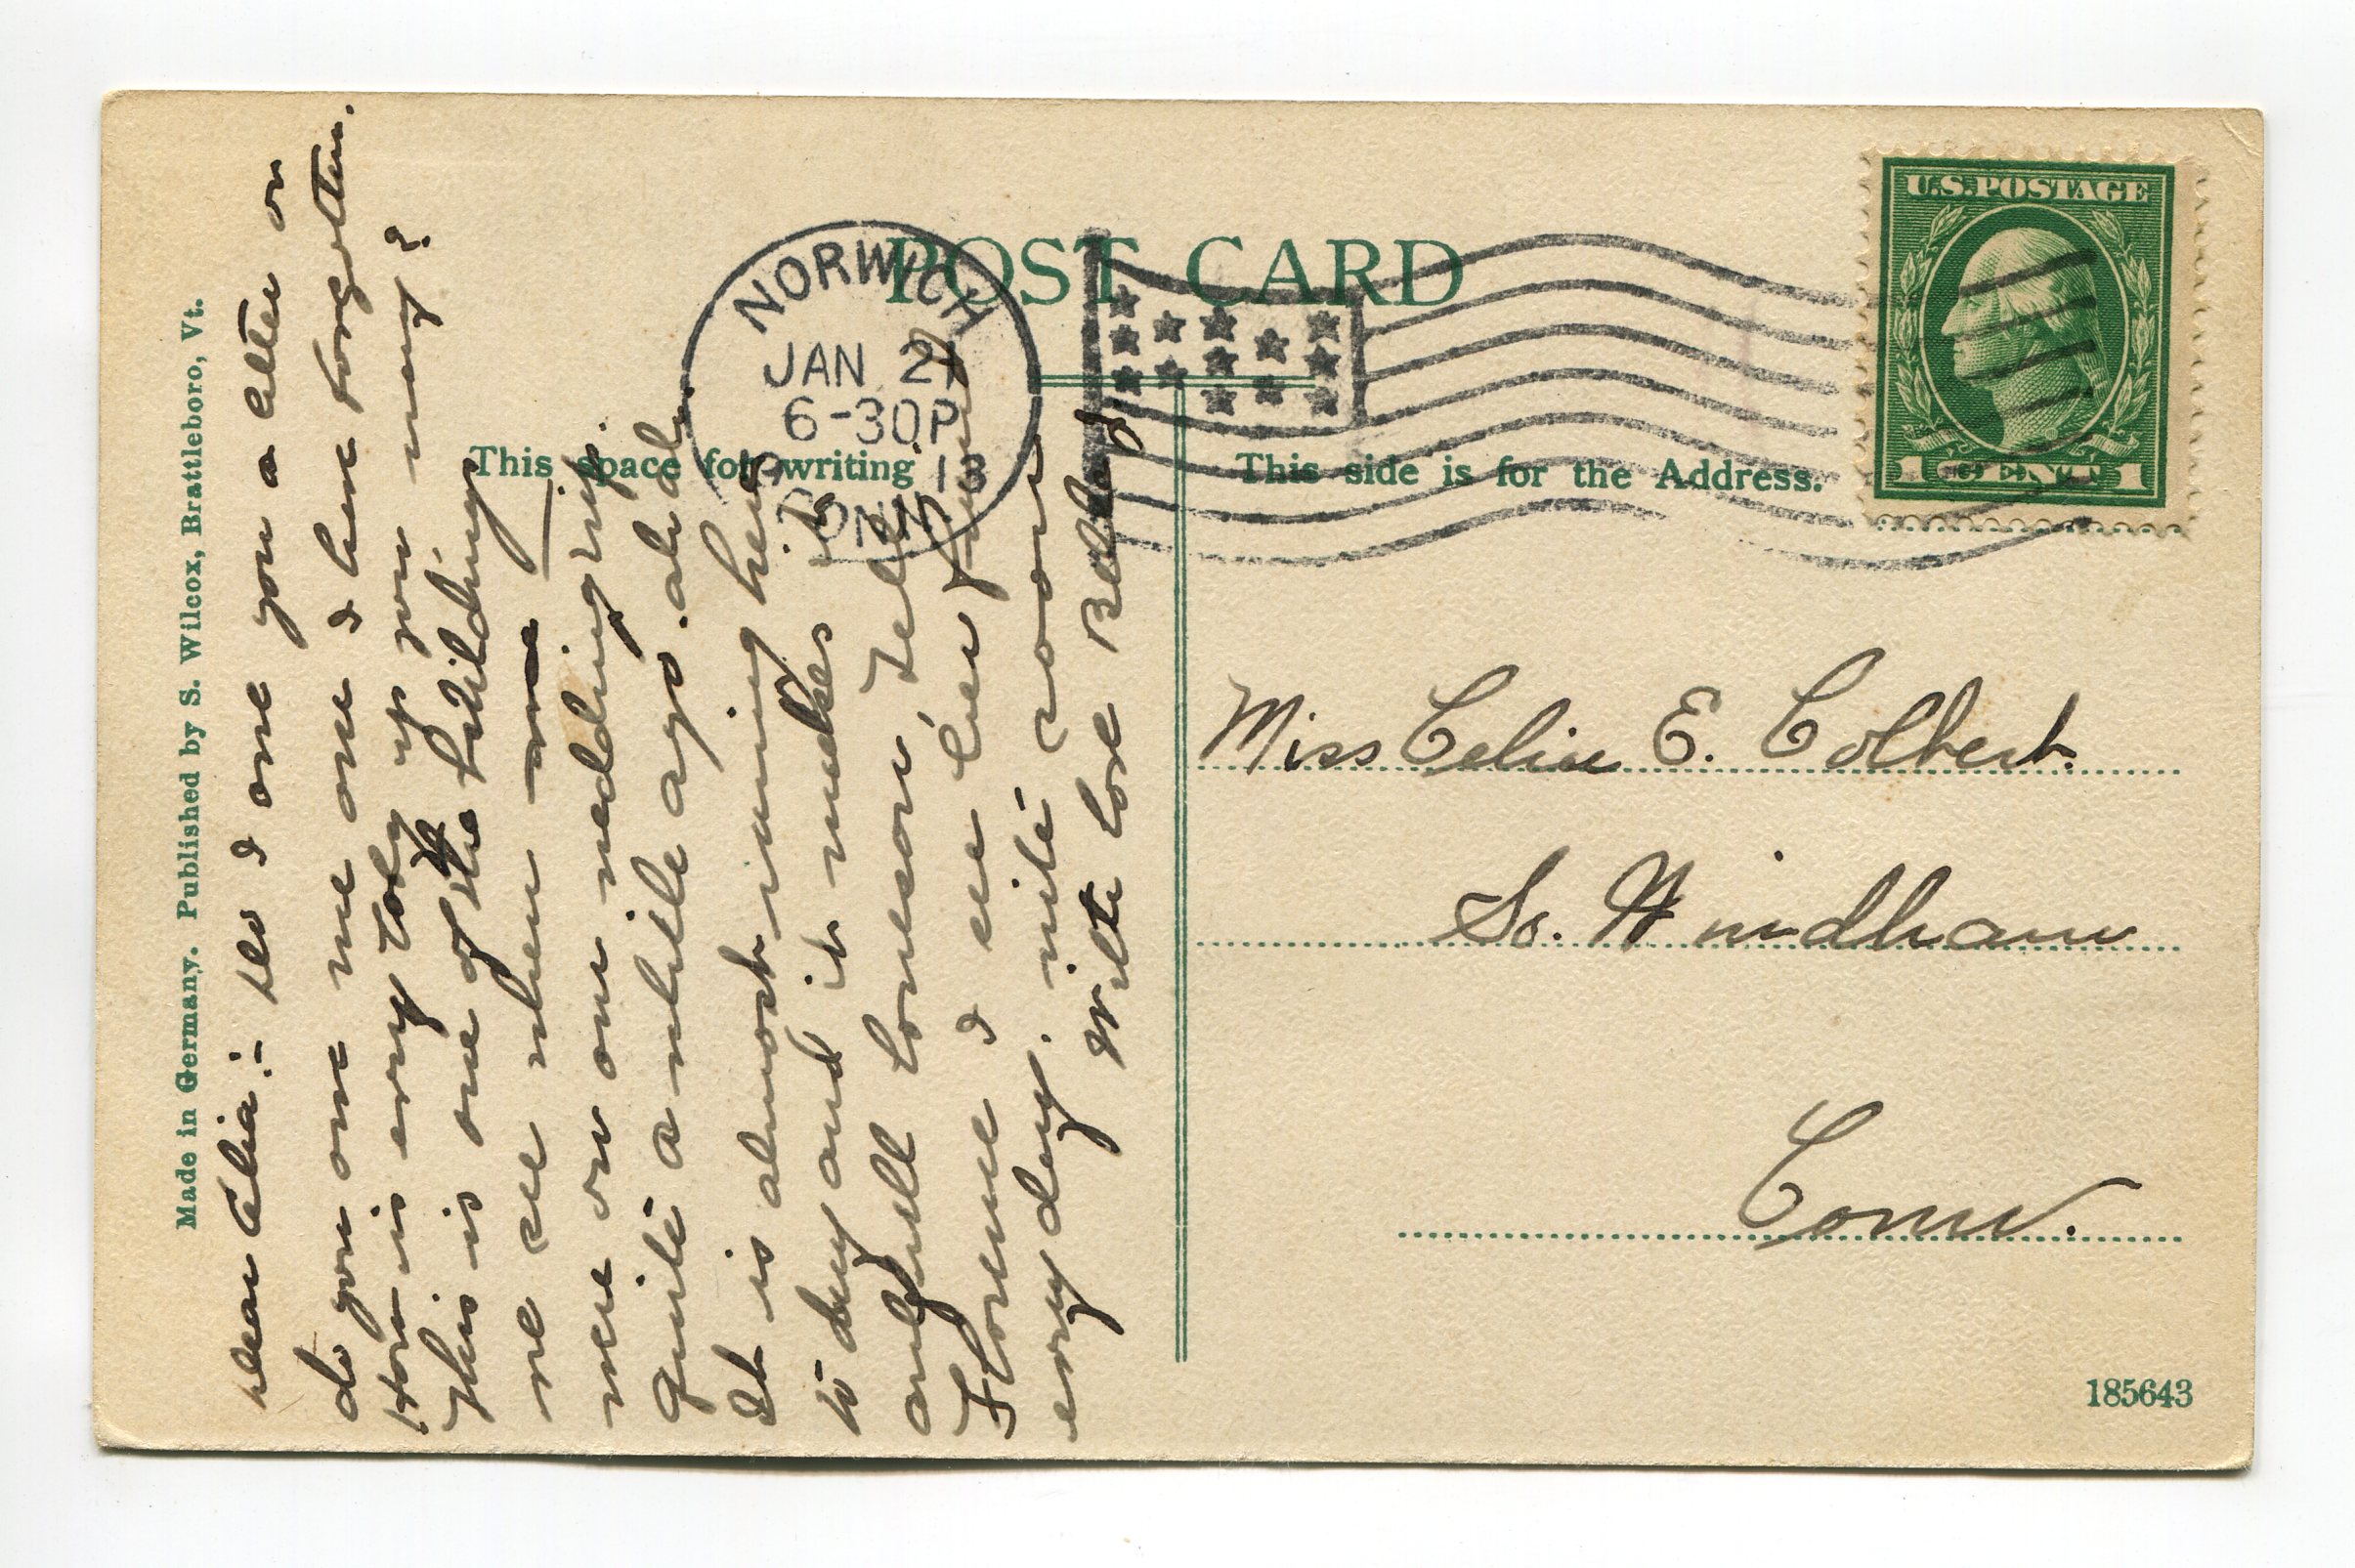 Made in Germany. Published by S. Wilcox, Brattleboro, Vt.
POST CARD
This space for writing
This side is for the Address.
NORWICH
JAN 2
6-30P
CONN
U.S. POSTAGE
1 CENT 1
Dear Celia:- Do I owe you a letter or
do you owe me one I have forgotten.
How is every body up your way?
This is one of the buildings
we see when
were on our wedding trip.
quite a while ago. ah ah.
It is almost raining here
to day and it makes it
awfull lonesome. Tell
Florence I see her
every day. write soon
With love Bella
Miss Celia E. Colbert.
So. Windham
Conn.
185643